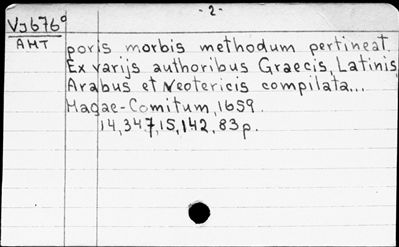 -2-
Vj676°
AMT
poris morbis methodum pertineat.
Ex varijs authoribus Graecis, Latinis,
Arabus et Neotericis compilata...
Hagae-Comitum, 1659.
14,347,15,142,83p.